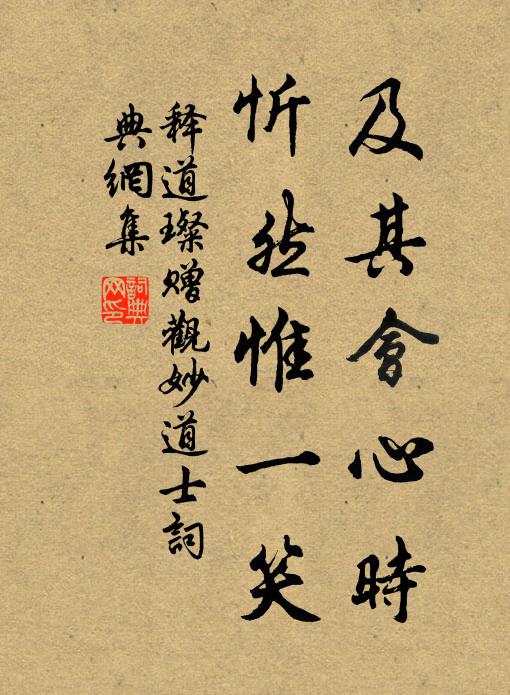 及其會心時
忻然惟一笑
释道璨贈觀妙道士詞
典網集
詞典
网印